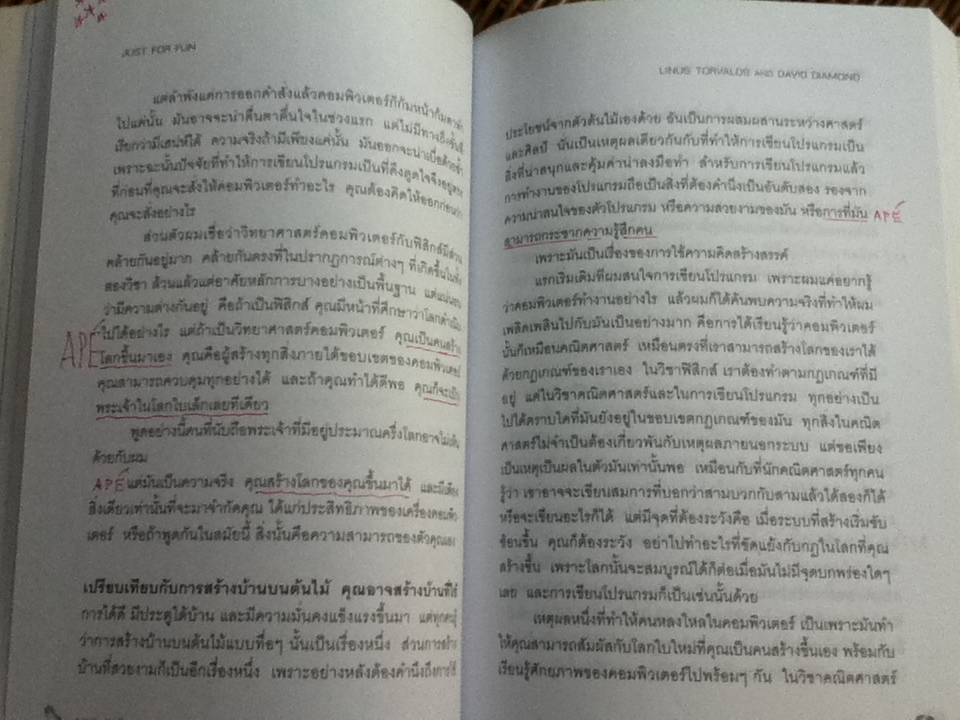 JUST FOR FUN
แต่ลำพังแค่การออกคำสั่งแล้วคอมพิวเตอร์ก็ก้มหน้าก้มตาทำ
ไปแค่นั้น มันอาจจะน่าตื่นตาตื่นใจในช่วงแรก แต่ไม่มีทางถึงขั้นที่
เรียกว่ามีเสน่ห์ได้ ความจริงถ้ามีเพียงแค่นั้น มันออกจะน่าเบื่อด้วยซ้ำ
เพราะฉะนั้นปัจจัยที่ทำให้การเขียนโปรแกรมเป็นที่ดึงดูดใจจึงอยู่ตรง
ที่ก่อนที่คุณจะสั่งให้คอมพิวเตอร์ทำอะไร คุณต้องคิดให้ออกก่อนว่า
คุณจะสั่งอย่างไร
ส่วนตัวผมเชื่อว่าวิทยาศาสตร์คอมพิวเตอร์กับฟิสิกส์มีส่วน
คล้ายกันอยู่มาก คล้ายกันตรงที่ในปรากฏการณ์ต่างๆ ที่เกิดขึ้นในทั้ง
สองวิชา ล้วนแล้วแต่อาศัยหลักการบางอย่างเป็นพื้นฐาน แต่แน่นอน
ว่ามีความต่างกันอยู่ คือถ้าเป็นฟิสิกส์ คุณมีหน้าที่ศึกษาว่าโลกดำเนิน
ไปได้อย่างไร แต่ถ้าเป็นวิทยาศาสตร์คอมพิวเตอร์ คุณเป็นคนสร้าง
APE โลกขึ้นมาเอง คุณคือผู้สร้างทุกสิ่งภายใต้ขอบเขตของคอมพิวเตอร์
คุณสามารถควบคุมทุกอย่างได้ และถ้าคุณทำได้ดีพอ คุณก็จะเป็น
พระเจ้าในโลกใบเล็กเลยทีเดียว
พูดอย่างนี้คนที่นับถือพระเจ้าที่มีอยู่ประมาณครึ่งโลกอาจไม่เห็น
ด้วยกับผม
APE แต่มันเป็นความจริง คุณสร้างโลกของคุณขึ้นมาได้ และมีเพียง
สิ่งเดียวเท่านั้นที่จะมาจำกัดคุณ ได้แก่ประสิทธิภาพของเครื่องคอมพิว
เตอร์ หรือถ้าพูดกันในสมัยนี้ สิ่งนั้นคือความสามารถของตัวคุณเอง
เปรียบเทียบกับการสร้างบ้านบนต้นไม้ คุณอาจสร้างบ้านที่ใช้
การได้ดี มีประตูใต้บ้าน และมีความมั่นคงแข็งแรงขึ้นมา แต่ทุกคนรู้
ว่าการสร้างบ้านบนต้นไม้แบบทื่อๆ นั้นเป็นเรื่องหนึ่ง ส่วนการสร้าง
บ้านที่สวยงามก็เป็นอีกเรื่องหนึ่ง เพราะอย่างหลังต้องคำนึงถึงการใช้
LINUS TORVALDS AND DAVID DIAMOND
ประโยชน์จากตัวต้นไม้เองด้วย อันเป็นการผสมผสานระหว่างศาสตร์
และศิลป์ นั่นเป็นเหตุผลเดียวกันกับที่ทำให้การเขียนโปรแกรมเป็น
สิ่งที่น่าสนุกและคุ้มค่าน่าลงมือทำ สำหรับการเขียนโปรแกรมแล้ว
การทำงานของโปรแกรมถือเป็นสิ่งที่ต้องคำนึงเป็นอันดับสอง รองจาก
ความน่าสนใจของตัวโปรแกรม หรือความสวยงามของมัน หรือการที่มัน APE
สามารถกระชากความรู้สึกคน
เพราะมันเป็นเรื่องของการใช้ความคิดสร้างสรรค์
แรกเริ่มเดิมทีผมสนใจการเขียนโปรแกรม เพราะผมแค่อยากรู้
ว่าคอมพิวเตอร์ทำงานอย่างไร แล้วผมก็ได้ค้นพบความจริงที่ทำให้ผม
เพลิดเพลินไปกับมันเป็นอย่างมาก คือการได้เรียนรู้ว่าคอมพิวเตอร์
นั้นก็เหมือนคณิตศาสตร์ เหมือนตรงที่เราสามารถสร้างโลกของเราได้
ด้วยกฎเกณฑ์ของเราเอง ในวิชาฟิสิกส์ เราต้องทำตามกฎเกณฑ์ที่มี
อยู่ แต่ในวิชาคณิตศาสตร์และในการเขียนโปรแกรม ทุกอย่างเป็น
ไปได้ตราบใดที่มันยังอยู่ในขอบเขตกฎเกณฑ์ของมัน ทุกสิ่งในคณิต
ศาสตร์ไม่จำเป็นต้องเกี่ยวพันกับเหตุผลภายนอกระบบ แต่ขอเพียง
เป็นเหตุเป็นผลในตัวมันเท่านั้นพอ เหมือนกับที่นักคณิตศาสตร์ทุกคน
รู้ว่า เขาอาจจะเขียนสมการที่บอกว่าสามบวกกับสามแล้วได้สองก็ได้
หรือจะเขียนอะไรก็ได้ แต่มีจุดที่ต้องระวังคือ เมื่อระบบที่สร้างเริ่มซับ
ซ้อนขึ้น คุณก็ต้องระวัง อย่าไปทำอะไรที่ขัดแย้งกับกฎในโลกที่คุณ
สร้างขึ้น เพราะโลกนั้นจะสมบูรณ์ได้ก็ต่อเมื่อมันไม่มีจุดบกพร่องใดๆ
เลย และการเขียนโปรแกรมก็เป็นเช่นนั้นด้วย
เหตุผลหนึ่งที่ทำให้คนหลงใหลในคอมพิวเตอร์ เป็นเพราะมันทำ
ให้คุณสามารถสัมผัสกับโลกใบใหม่ที่คุณเป็นคนสร้างขึ้นเอง พร้อมกับ
เรียนรู้ศักยภาพของคอมพิวเตอร์ไปพร้อมๆ กัน ในวิชาคณิตศาสตร์